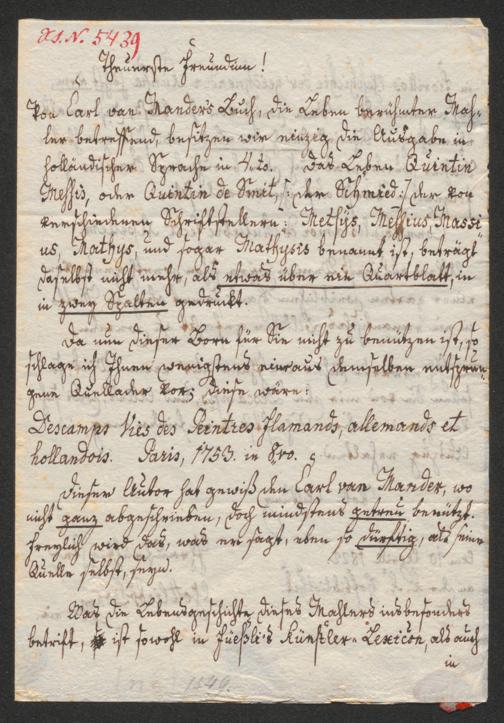 I.N. 5439
Theuerste Freundinn!
Von Carl van Mander's Buch, die Leben berühmter Mah-
ler betreffend, besitzen wir einzig die Ausgabe in
holländischer Sprache in 4to. Das Leben Quintin
Messis, oder Quintin de Smit, /: der Schmied :/ der von
verschiedenen Schriftstellern: Methsys, Messius, Massi
us, Mathys, und sogar Mathysis benannt ist, beträgt
daselbst nicht mehr, als etwas über ein Quartblatt, in
in zwey Spalten gedruckt.
Da nun dieser Born für Sie nicht zu benützen ist, so
schlage ich Ihnen wenigstens eine aus demselben entsprun-
gene Quellader vor; diese wäre:
Descamps Vies des Peintres flamands, allemands et
hollandois. Paris, 1753. in 8vo.
Dieser Autor hat gewiß den Carl van Mander, wo
nicht ganz abgeschrieben, doch mindstens getreu benützt.
Freylich wird das, was er sagt, eben so dürftig, als seine
Quelle selbst, seyn.
Was die Lebensgeschichte dieses Mahlers insbesonders
betrifft, ist sowohl in Füeßli's Künstler-Lexicon, als auch
in